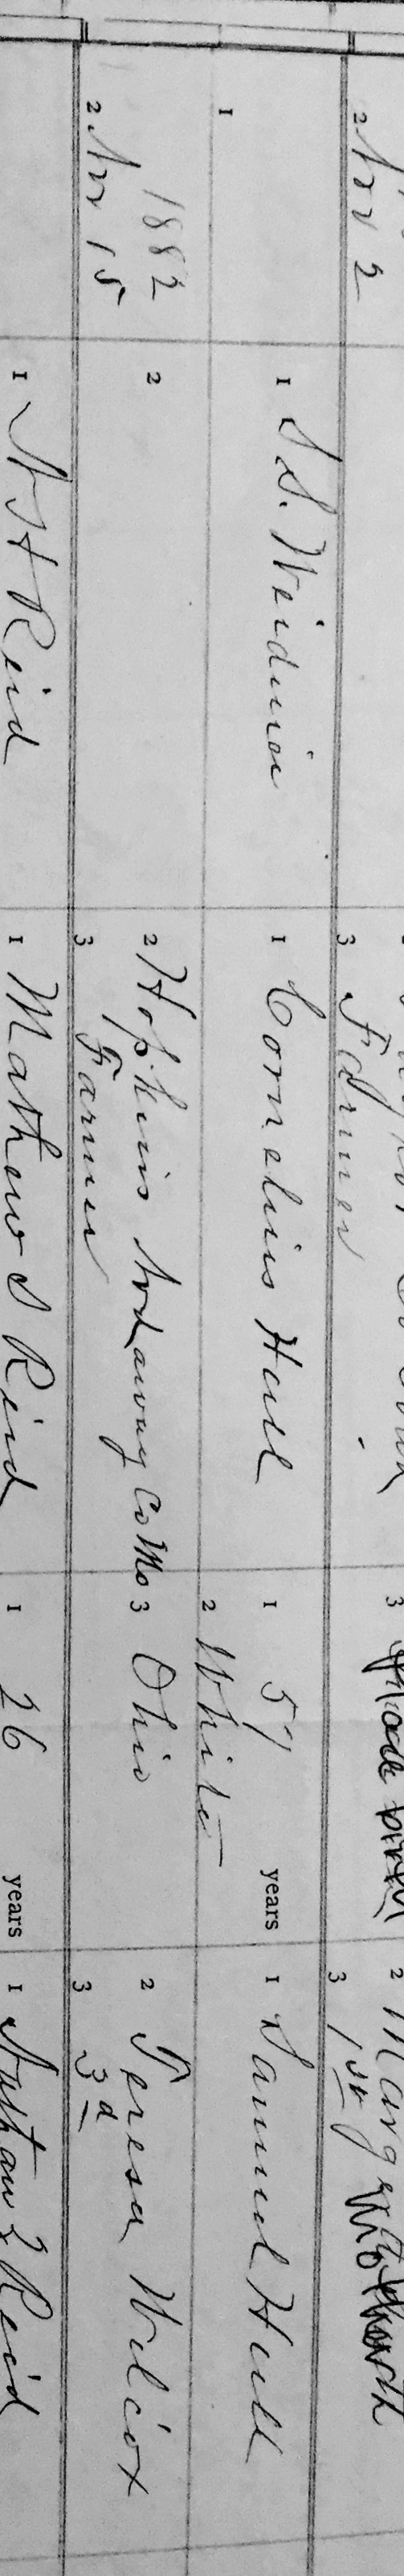 2 Nov 2
3 Farmer
3
2 Marg
3 1st
1
1882
2 Nov 15
1 S S. Weidner
2
1 Cornelius Hull
2 Hopkins Nodaway Co Mo
3 Farmer
1 57 years
2 White
3 Ohio
1 Samuel Hull
2 Teresa Wilcox
3 3d
1 Reid
1 Mathew S Reid
1 26 years
1 Reid